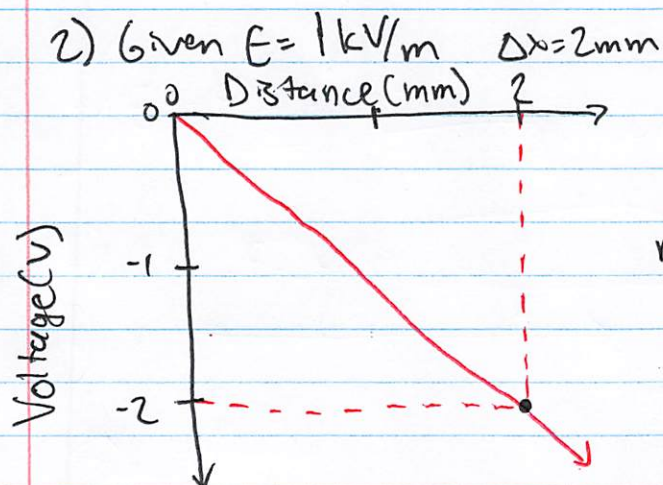 2) Given E= 1kV/m Δx=2mm
0 Distance(mm) 2
0
-1
-2
Voltage(V)